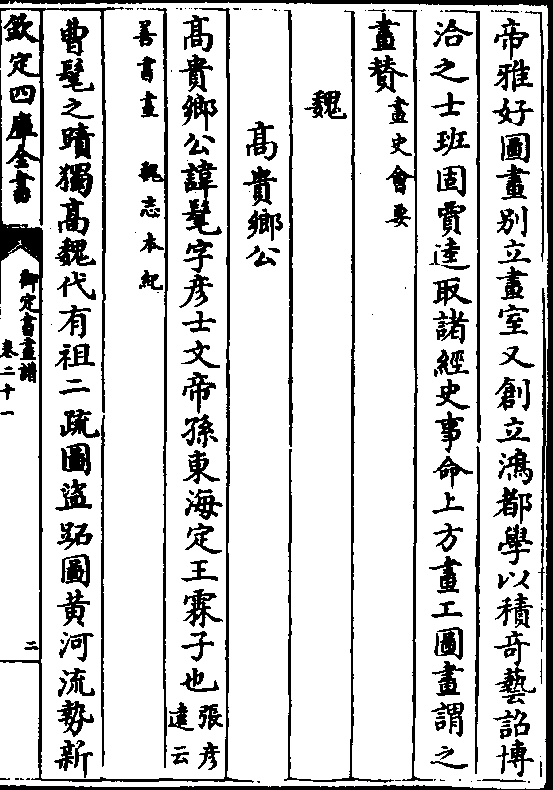 帝雅好圖畫别立畫室又創立鴻都學以積奇藝詔博
洽之士班固賈逵取諸經史事命上方畫工圖畫謂之
畫賛畫史會要
魏
高貴鄉公
高貴鄉公諱髦字彦士文帝孫東海定王霖子也張彦
遠云
善書畫 魏志本紀
曹髦之蹟獨高魏代有祖二疏圖盜跖圖黃河流勢新
欽定四庫全書
御定書畫譜
卷二十一
二